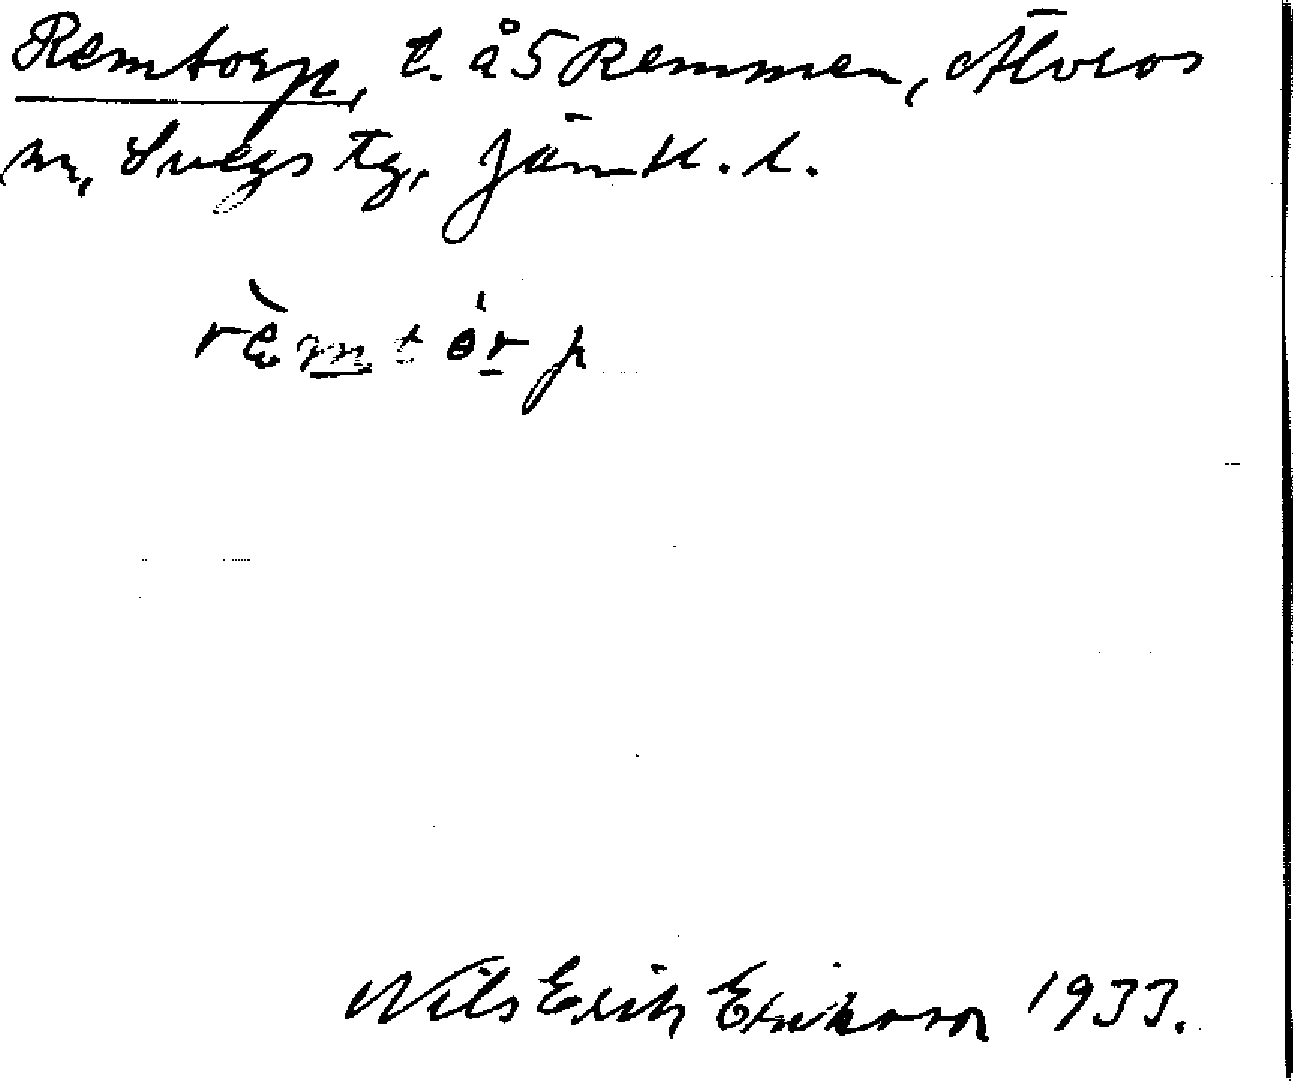 Remtorp, t. å S Remmen, Älvros
sn, Svegs tg, Jämtl. l.
rèmtórp
Nils Erik Eriksson 1933.